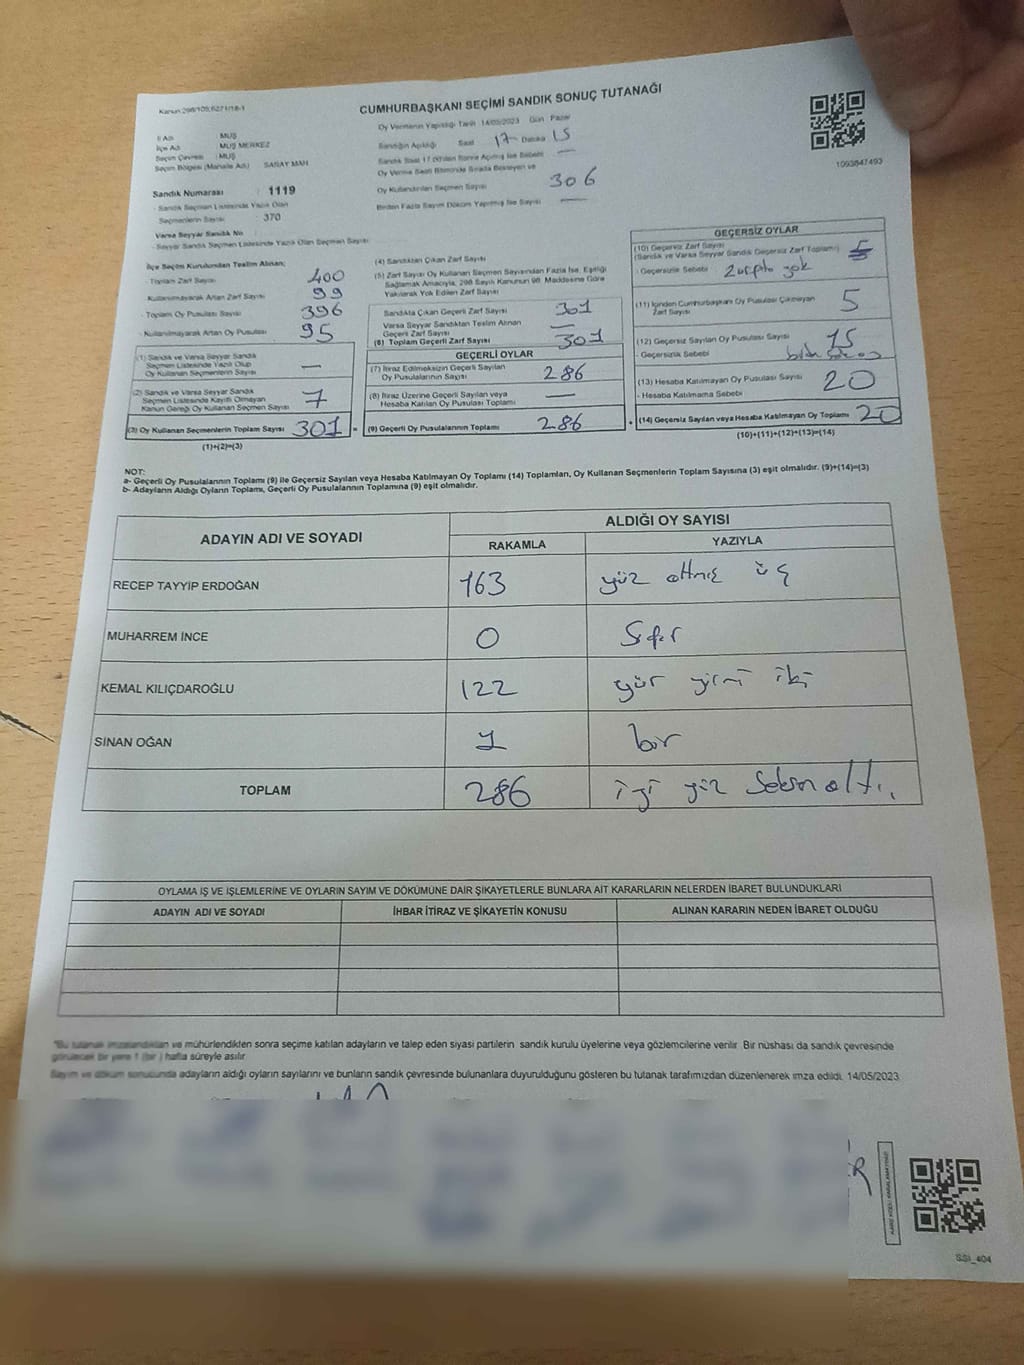 Kanun:298/105;6271/18-1
CUMHURBAŞKANI SEÇİMİ SANDIK SONUÇ TUTANAĞI
İl Adı : MUŞ
İlçe Adı : MUŞ MERKEZ
Seçim Çevresi : MUŞ
Seçim Bölgesi (Mahalle Adı) SARAY MAH
Sandık Numarası : 1119
- Sandık Seçmen Listesinde Yazılı Olan
Seçmenlerin Sayısı : 370
Varsa Seyyar Sandık No
- Seyyar Sandık Seçmen Listesinde Yazılı Olan Seçmen Sayısı
Oy Vermenin Yapıldığı Tarih 14/05/2023 Gün Pazar
Sandığın Açıldığı Saat 17 Dakika 15
Sandık Saat 17.00'den Sonra Açılmış İse Sebebi —
Oy Verme Saati Bitiminde Sırada Bekleyen ve
Oy Kullandırılan Seçmen Sayısı 306
Birden Fazla Sayım Döküm Yapılmış İse Sayısı —
1093847493
İlçe Seçim Kurulundan Teslim Alınan;
- Toplam Zarf Sayısı 400
Kullanılmayarak Artan Zarf Sayısı 99
- Toplam Oy Pusulası Sayısı 396
- Kullanılmayarak Artan Oy Pusulası 95
(1) Sandık ve Varsa Seyyar Sandık
Seçmen Listesinde Yazılı Olup
Oy Kullanan Seçmenlerin Sayısı —
(2) Sandık ve Varsa Seyyar Sandık
Seçmen Listesinde Kayıtlı Olmayan
Kanun Gereği Oy Kullanan Seçmen Sayısı 7
(3) Oy Kullanan Seçmenlerin Toplam Sayısı 301 =
(1)+(2)=(3)
(4) Sandıktan Çıkan Zarf Sayısı
(5) Zarf Sayısı Oy Kullanan Seçmen Sayısından Fazla İse, Eşitliği
Sağlamak Amacıyla, 298 Sayılı Kanunun 98. Maddesine Göre
Yakılarak Yok Edilen Zarf Sayısı
Sandıkta Çıkan Geçerli Zarf Sayısı 301
Varsa Seyyar Sandıktan Teslim Alınan
Geçerli Zarf Sayısı —
(6) Toplam Geçerli Zarf Sayısı 301
GEÇERLİ OYLAR
(7) İtiraz Edilmeksizin Geçerli Sayılan
Oy Pusulalarının Sayısı 286
(8) İtiraz Üzerine Geçerli Sayılan veya
Hesaba Katılan Oy Pusulası Toplamı —
(9) Geçerli Oy Pusulalarının Toplamı 286 +
GEÇERSİZ OYLAR
(10) Geçersiz Zarf Sayısı
(Sandık ve Varsa Seyyar Sandık Geçersiz Zarf Toplamı)
- Geçersizlik Sebebi yok
(11) İçinden Cumhurbaşkanı Oy Pusulası Çıkmayan
Zarf Sayısı 5
(12) Geçersiz Sayılan Oy Pusulası Sayısı 15
- Geçersizlik Sebebi
(13) Hesaba Katılmayan Oy Pusulası Sayısı 20
- Hesaba Katılmama Sebebi
(14) Geçersiz Sayılan veya Hesaba Katılmayan Oy Toplamı 20
(10)+(11)+(12)+(13)=(14)
NOT:
a- Geçerli Oy Pusulalarının Toplamı (9) ile Geçersiz Sayılan veya Hesaba Katılmayan Oy Toplamı (14) Toplamları, Oy Kullanan Seçmenlerin Toplam Sayısına (3) eşit olmalıdır. (9)+(14)=(3)
b- Adayların Aldığı Oyların Toplamı, Geçerli Oy Pusulalarının Toplamına (9) eşit olmalıdır.
ADAYIN ADI VE SOYADI
ALDIĞI OY SAYISI
RAKAMLA YAZIYLA
RECEP TAYYİP ERDOĞAN 163 yüz altmış üç
MUHARREM İNCE 0 Sıfır
KEMAL KILIÇDAROĞLU 122 yüz yirmi iki
SİNAN OĞAN 1 bir
TOPLAM 286 iki yüz Seksen altı
OYLAMA İŞ VE İŞLEMLERİNE VE OYLARIN SAYIM VE DÖKÜMÜNE DAİR ŞİKAYETLERLE BUNLARA AİT KARARLARIN NELERDEN İBARET BULUNDUKLARI
ADAYIN ADI VE SOYADI İHBAR İTİRAZ VE ŞİKAYETİN KONUSU ALINAN KARARIN NEDEN İBARET OLDUĞU
"Bu tutanak imzalandıktan ve mühürlendikten sonra seçime katılan adayların ve talep eden siyasi partilerin sandık kurulu üyelerine veya gözlemcilerine verilir. Bir nüshası da sandık çevresinde
görülecek bir yere 1 (bir) hafta süreyle asılır.
Sayım ve döküm sonucunda adayların aldığı oyların sayılarını ve bunların sandık çevresinde bulunanlara duyurulduğunu gösteren bu tutanak tarafımızdan düzenlenerek imza edildi. 14/05/2023
SSI_404